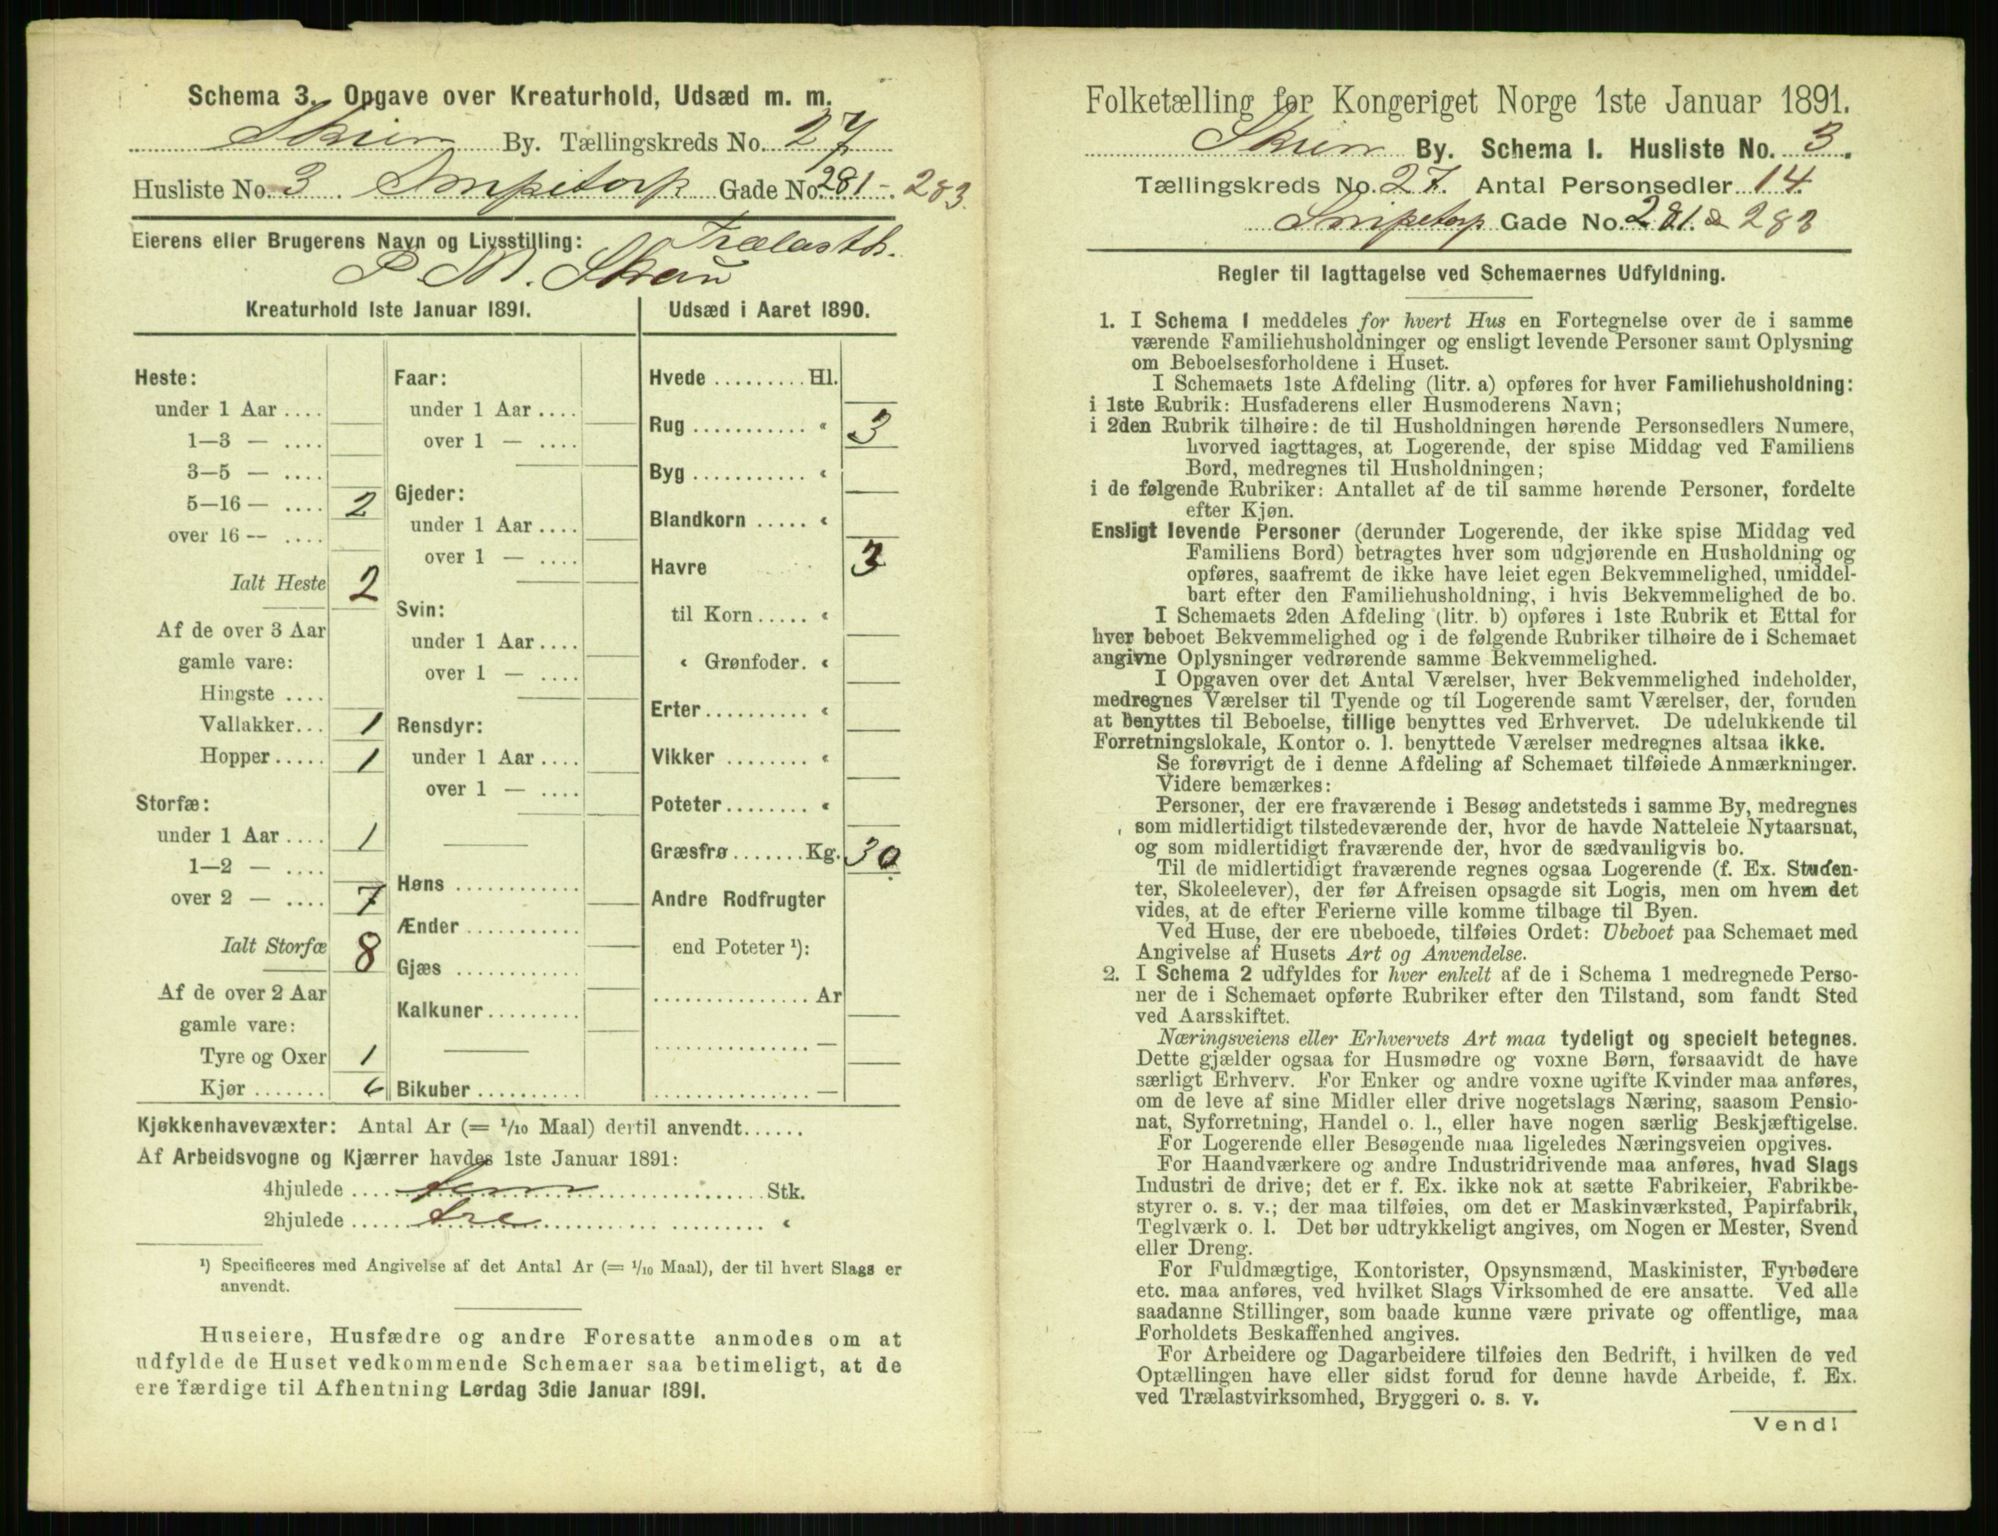 Schema 3. Opgave over Kreaturhold, Udsæd m. m.
Skien By. Tællingskreds No. 27
Husliste No. 3 Snipetorp Gade No. 281-283
Eierens eller Brugerens Navn og Livsstilling: Trælasth.
P M. Skau
Kreaturhold 1ste Januar 1891.
Heste:
under 1 Aar ....
1—3 — ....
3—5 — ....
5—16 — .... 2
over 16 — ....
Ialt Heste 2
Af de over 3 Aar
gamle vare:
Hingste ....
Vallakker... 1
Hopper..... 1
Storfæ:
under 1 Aar .... 1
1—2 — ....
over 2 — .... 7
Ialt Storfæ 8
Af de over 2 Aar
gamle vare:
Tyre og Oxer 1
Kjør ....... 6
Faar:
under 1 Aar ....
over 1 — ....
Gjeder:
under 1 Aar ....
over 1 — ....
Svin:
under 1 Aar ....
over 1 — ....
Rensdyr:
under 1 Aar ....
over 1 — ....
Høns ...........
Ænder ...........
Gjæs ...........
Kalkuner.........
Bikuber ..........
Udsæd i Aaret 1890.
Hvede ......... Hl.
Rug ........... « 3
Byg ........... «
Blandkorn ..... «
Havre 3
til Korn ..... «
« Grønfoder. «
Erter.......... «
Vikker ........ «
Poteter........ «
Græsfrø....... Kg. 30
Andre Rodfrugter
end Poteter ¹):
............... Ar
............... —
............... —
Kjøkkenhavevæxter: Antal Ar (= 1/10 Maal) dertil anvendt......
Af Arbeidsvogne og Kjærrer havdes 1ste Januar 1891:
4hjulede .... fem .... Stk.
2hjulede .... tre .... «
¹) Specificeres med Angivelse af det Antal Ar (= 1/10 Maal), der til hvert Slags er
anvendt.
Huseiere, Husfædre og andre Foresatte anmodes om at
udfylde de Huset vedkommende Schemaer saa betimeligt, at de
ere færdige til Afhentning Lørdag 3die Januar 1891.
Folketælling for Kongeriget Norge 1ste Januar 1891.
Skien By. Schema 1. Husliste No. 3.
Tællingskreds No. 27. Antal Personsedler 14.
Snipetorp Gade No. 281. & 283
Regler til Iagttagelse ved Schemaernes Udfyldning.
1. I Schema 1 meddeles for hvert Hus en Fortegnelse over de i samme
værende Familiehusholdninger og ensligt levende Personer samt Oplysning
om Beboelsesforholdene i Huset.
I Schemaets 1ste Afdeling (litr. a) opføres for hver Familiehusholdning:
i 1ste Rubrik: Husfaderens eller Husmoderens Navn;
i 2den Rubrik tilhøire: de til Husholdningen hørende Personsedlers Numere,
hvorved iagttages, at Logerende, der spise Middag ved Familiens
Bord, medregnes til Husholdningen;
i de følgende Rubriker: Antallet af de til samme hørende Personer, fordelte
efter Kjøn.
Ensligt levende Personer (derunder Logerende, der ikke spise Middag ved
Familiens Bord) betragtes hver som udgjørende en Husholdning og
opføres, saafremt de ikke have leiet egen Bekvemmelighed, umiddel-
bart efter den Familiehusholdning, i hvis Bekvemmelighed de bo.
I Schemaets 2den Afdeling (litr. b) opføres i 1ste Rubrik et Ettal for
hver beboet Bekvemmelighed og i de følgende Rubriker tilhøire de i Schemaet
angivne Oplysninger vedrørende samme Bekvemmelighed.
I Opgaven over det Antal Værelser, hver Bekvemmelighed indeholder,
medregnes Værelser til Tyende og til Logerende samt Værelser, der, foruden
at benyttes til Beboelse, tillige benyttes ved Erhvervet. De udelukkende til
Forretningslokale, Kontor o. l. benyttede Værelser medregnes altsaa ikke.
Se forøvrigt de i denne Afdeling af Schemaet tilføiede Anmærkninger.
Videre bemærkes:
Personer, der ere fraværende i Besøg andetsteds i samme By, medregnes
som midlertidigt tilstedeværende der, hvor de havde Natteleie Nytaarsnat,
og som midlertidigt fraværende der, hvor de sædvanligvis bo.
Til de midlertidigt fraværende regnes ogsaa Logerende (f. Ex. Studen-
ter, Skoleelever), der før Afreisen opsagde sit Logis, men om hvem det
vides, at de efter Ferierne ville komme tilbage til Byen.
Ved Huse, der ere ubeboede, tilføies Ordet: Ubeboet paa Schemaet med
Angivelse af Husets Art og Anvendelse.
2. I Schema 2 udfyldes for hver enkelt af de i Schema 1 medregnede Perso-
ner de i Schemaet opførte Rubriker efter den Tilstand, som fandt Sted
ved Aarsskiftet.
Næringsveiens eller Erhvervets Art maa tydeligt og specielt betegnes.
Dette gjælder ogsaa for Husmødre og voxne Børn, forsaavidt de have
særligt Erhverv. For Enker og andre voxne ugifte Kvinder maa anføres,
om de leve af sine Midler eller drive nogetslags Næring, saasom Pensio-
nat, Syforretning, Handel o. l., eller have nogen særlig Beskjæftigelse.
For Logerende eller Besøgende maa ligeledes Næringsveien opgives.
For Haandværkere og andre Industridrivende maa anføres, hvad Slags
Industri de drive; det er f. Ex. ikke nok at sætte Fabrikeier, Fabrikbe-
styrer o. s. v.; der maa tilføies, om det er Maskinværksted, Papirfabrik,
Teglværk o. l. Det bør udtrykkeligt angives, om Nogen er Mester, Svend
eller Dreng.
For Fuldmægtige, Kontorister, Opsynsmænd, Maskinister, Fyrbødere
etc. maa anføres, ved hvilket Slags Virksomhed de ere ansatte. Ved alle
saadanne Stillinger, som baade kunne være private og offentlige, maa
Forholdets Beskaffenhed angives.
For Arbeidere og Dagarbeidere tilføies den Bedrift, i hvilken de ved
Optællingen have eller sidst forud for denne havde Arbeide, f. Ex.
ved Trælastvirksomhed, Bryggeri o. s. v.
Vend!